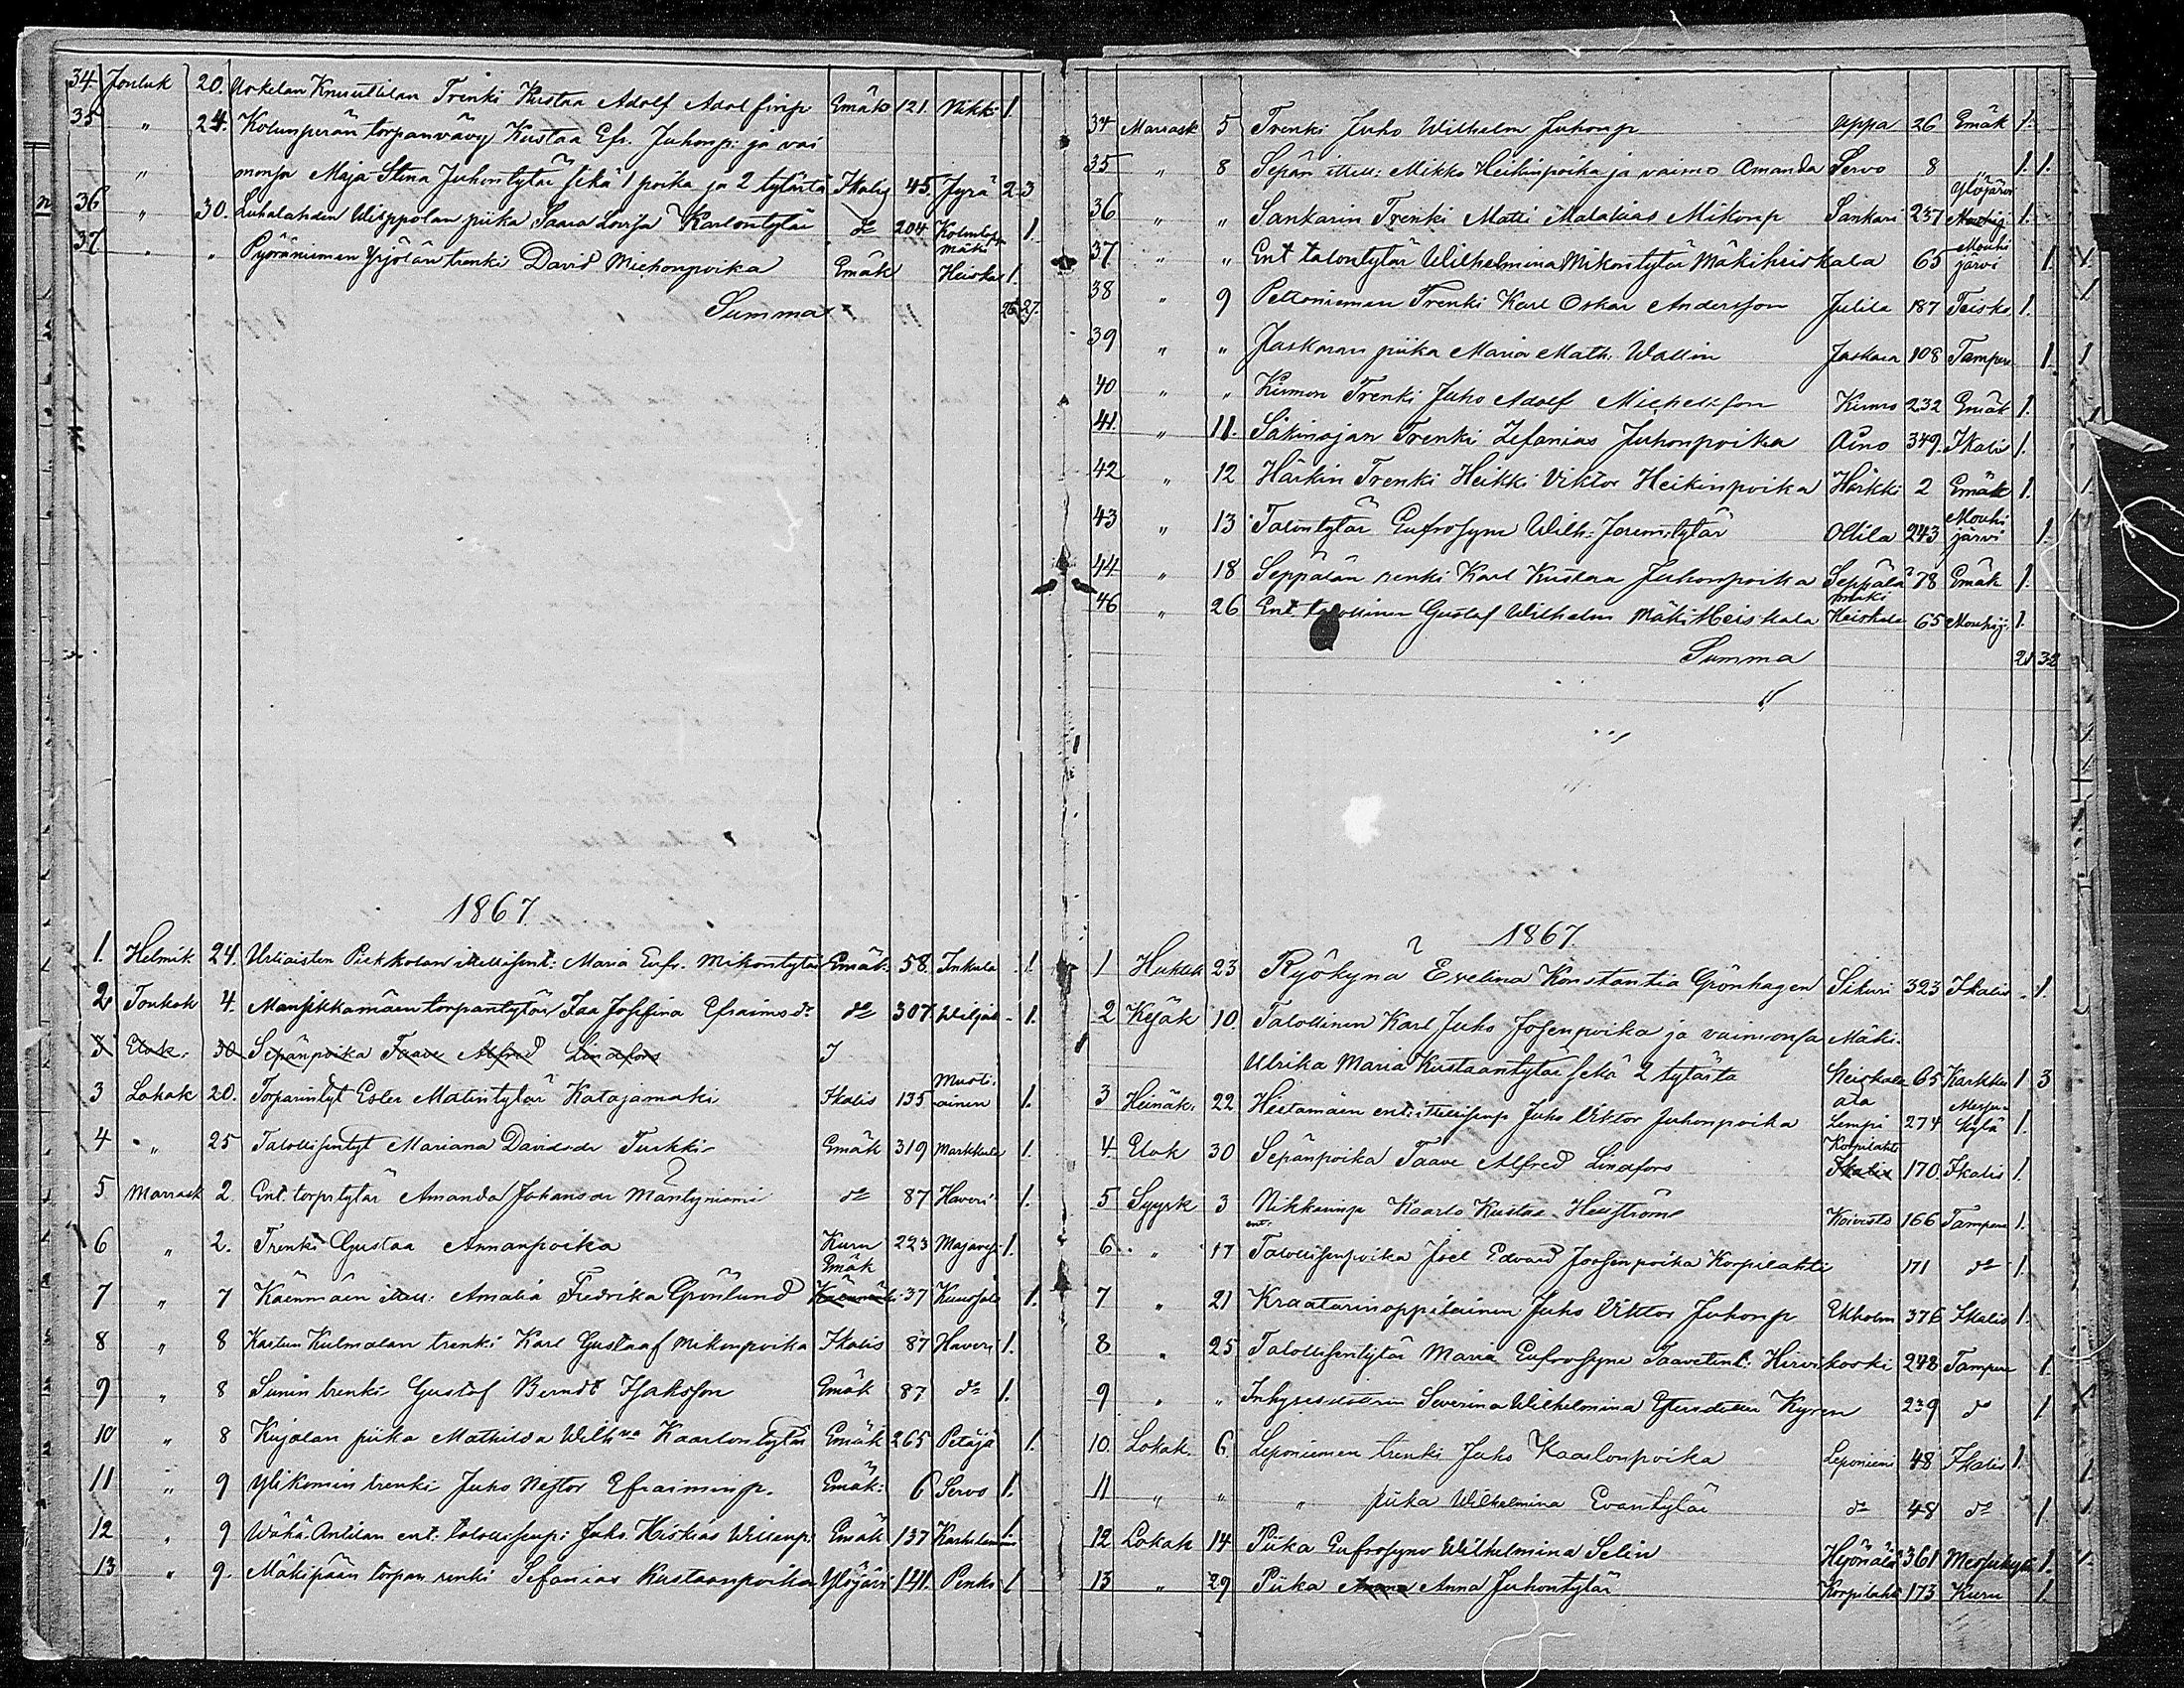 34. Jouluk 20. Uskelan Knuutilan Trenki Kustaa Adolf Adolfinp Emäk 121. Nikki 1.
35 " 24. Kolunperän torpanvävy Kustaa Efr. Juhonp: ja vai
" monsa Maja Stina Juhontytär sekä 1 poika ja 2 tytärtä Ikalis 45 Jyrä 2 3
36 " 30. Luhalahden Wisppolan piika Saara Lovisa Karlontytär do 204 1.
37. " " Pyöräniemen Yrjölän trenki David Michonpoika Emäk Heiska 1.
Summa 26 27.
1867.
1. Helmik 24. Urtiaisten Piekkolan itellisent: Maria Eufr. Mikontytär Emäk. 58. Inkula 1.
2 Toukok 4. Mansikkamäen torpantytär Ida Josefina Efraimsdr do 307. Wiljak 1.
3 Elok. 30 Sepänpoika Taave Alfred Lindfors I
3 Lokak 20. Torparintyt Ester Matintytär Katajamäki Ikalis 135 Musti-
ainen 1.
4 " 25 Talollisentyt Mariana Davidsdr Turkki Emäk 319 Markkula 1.
5 Marrask 2 Ent. torpsytär Amanda Johansdr Mäntyniemi do 87 Haveri 1.
6 " 2. Trenki Gustaa Annanpoika Kuru 223 Majaves 1.
7 " 7 Käenmäen itell: Amalia Fredrika Grönlund Emäk Käenmäki 37 Kuusjoki 1.
8 " 8 Kastun Kulmalan trenki Karl Gustaaf Mikonpoika Ikalis 87 Haveri 1.
9 " 8 Sunin trenki Gustaf Berndt Isaksson Emäk 87 do 1.
10 " 8 Kujalan piika Mathilda Wilhna Kaarlontytär Emäk 265 Petäjä 1.
11 " 9 Ylikomin trenki Juho Nestor Efraiminp. Emäk: 6 Servo 1.
12 " 9 Wähä Anttilan ent: talollisenp: Juho Hiskias Willenp: Emäk 137 1.
13 " 9. Mäkipään torpan renki Sefanias Kustaanpoika Ylöjärvi 141. Penks 1
34 Marrask 5 Trenki Juho Wilhelm Juhonp Oppa 26 Emäk 1.
35 " 8 Sepän itell: Mikko Heikinpoika ja vaimo Amanda Servo 8 1. 1.
36 " " Sankarin Trenki Matti Malakias Mikonp Sankari 237 Ylöjärvi Mouhij 1.
37 " " Ent talontytär Wilhelmina Mikontytär Mäkiheiskala 65 Mouhi
järvi 1.
38 " 9 Peltoniemen Trenki Karl Oskar Andersson Julila 187 Teisko 1.
39 " " Jaskaran piika Maria Math: Wallin Jaskara 108 Tampere 1.
40 " " Kiimon Trenki Juho Adolf Michelsson Kiimo 232 Emäk 1.
41. " 11. Säkinojan Trenki Zefanias Juhonpoika Aino 349. Ikalis 1.
42 " 12 Härkin Trenki Heikki Viktor Heikinpoika Härkki 2 Emäk 1.
43 " 13 Talontytär Eufrosyne Wilh: Jeremi:tytär Ollila 243 Mouhi
järvi 1.
44 " 18 Seppälän renki Karl Kustaa Juhonpoika Seppälä 78 Emäk 1.
46 " 26 Ent. talollinen Gustaf Wilhelm Mäki Heiskala mäki
Heiskala 65 Mouhij. 1.
Summa 28 32
1867.
1 Huhtik 23 Ryökynä Evelina Konstantia Grönhagen Sikuri 323 Ikalis 1.
2 Kesäk 10. Talollinen Karl Juho Josenpoika ja vaimonsa Mäki-
Ulrika Maria Kustaantytär sekä 2 tytärtä Heiskala 65 Karkku 1 3
3 Heinäk. 22 Hietamäen ent:itellisenp Juho Viktor Juhonpoika ala
Lempi 274 Messu-
kylä 1.
4. Elok 30 Sepänpoika Taave Alfred Lindfors Korpilahti Ikalis 170. Ikalis 1.
5 Syysk 3 Nikkarinp Kaarlo Kustaa Koivisto 166 Tampere 1.
6. " 17 ent. Talollisenpoika Joel Edvard Joosenpoika Korpilahti 171 do 1.
7 " 21 Kraatarinoppilainen Juho Viktor Juhonp Ekholm 376 Ikalis 1.
8 " 25 Talollisentytär Maria Eufrosyne Taavetint: Hirvikoski 248 Tampere 1.
9 " " Severina Wilhelmina Kyren 239 do 1.
10. Lokak. 6. Leponiemen trenki Juho Kaarlonpoika Leponiemi 48 Ikalis 1.
11 " " " piika Wilhelmina Evantytär do 48 do 1.
12 Lokak 14 Piika Eufrosyne Wilhelmina Selin 361 Messukylä 1.
13 " 29 Piika Anna Anna Juhontytär Korpilahti 173 Kuru 1.